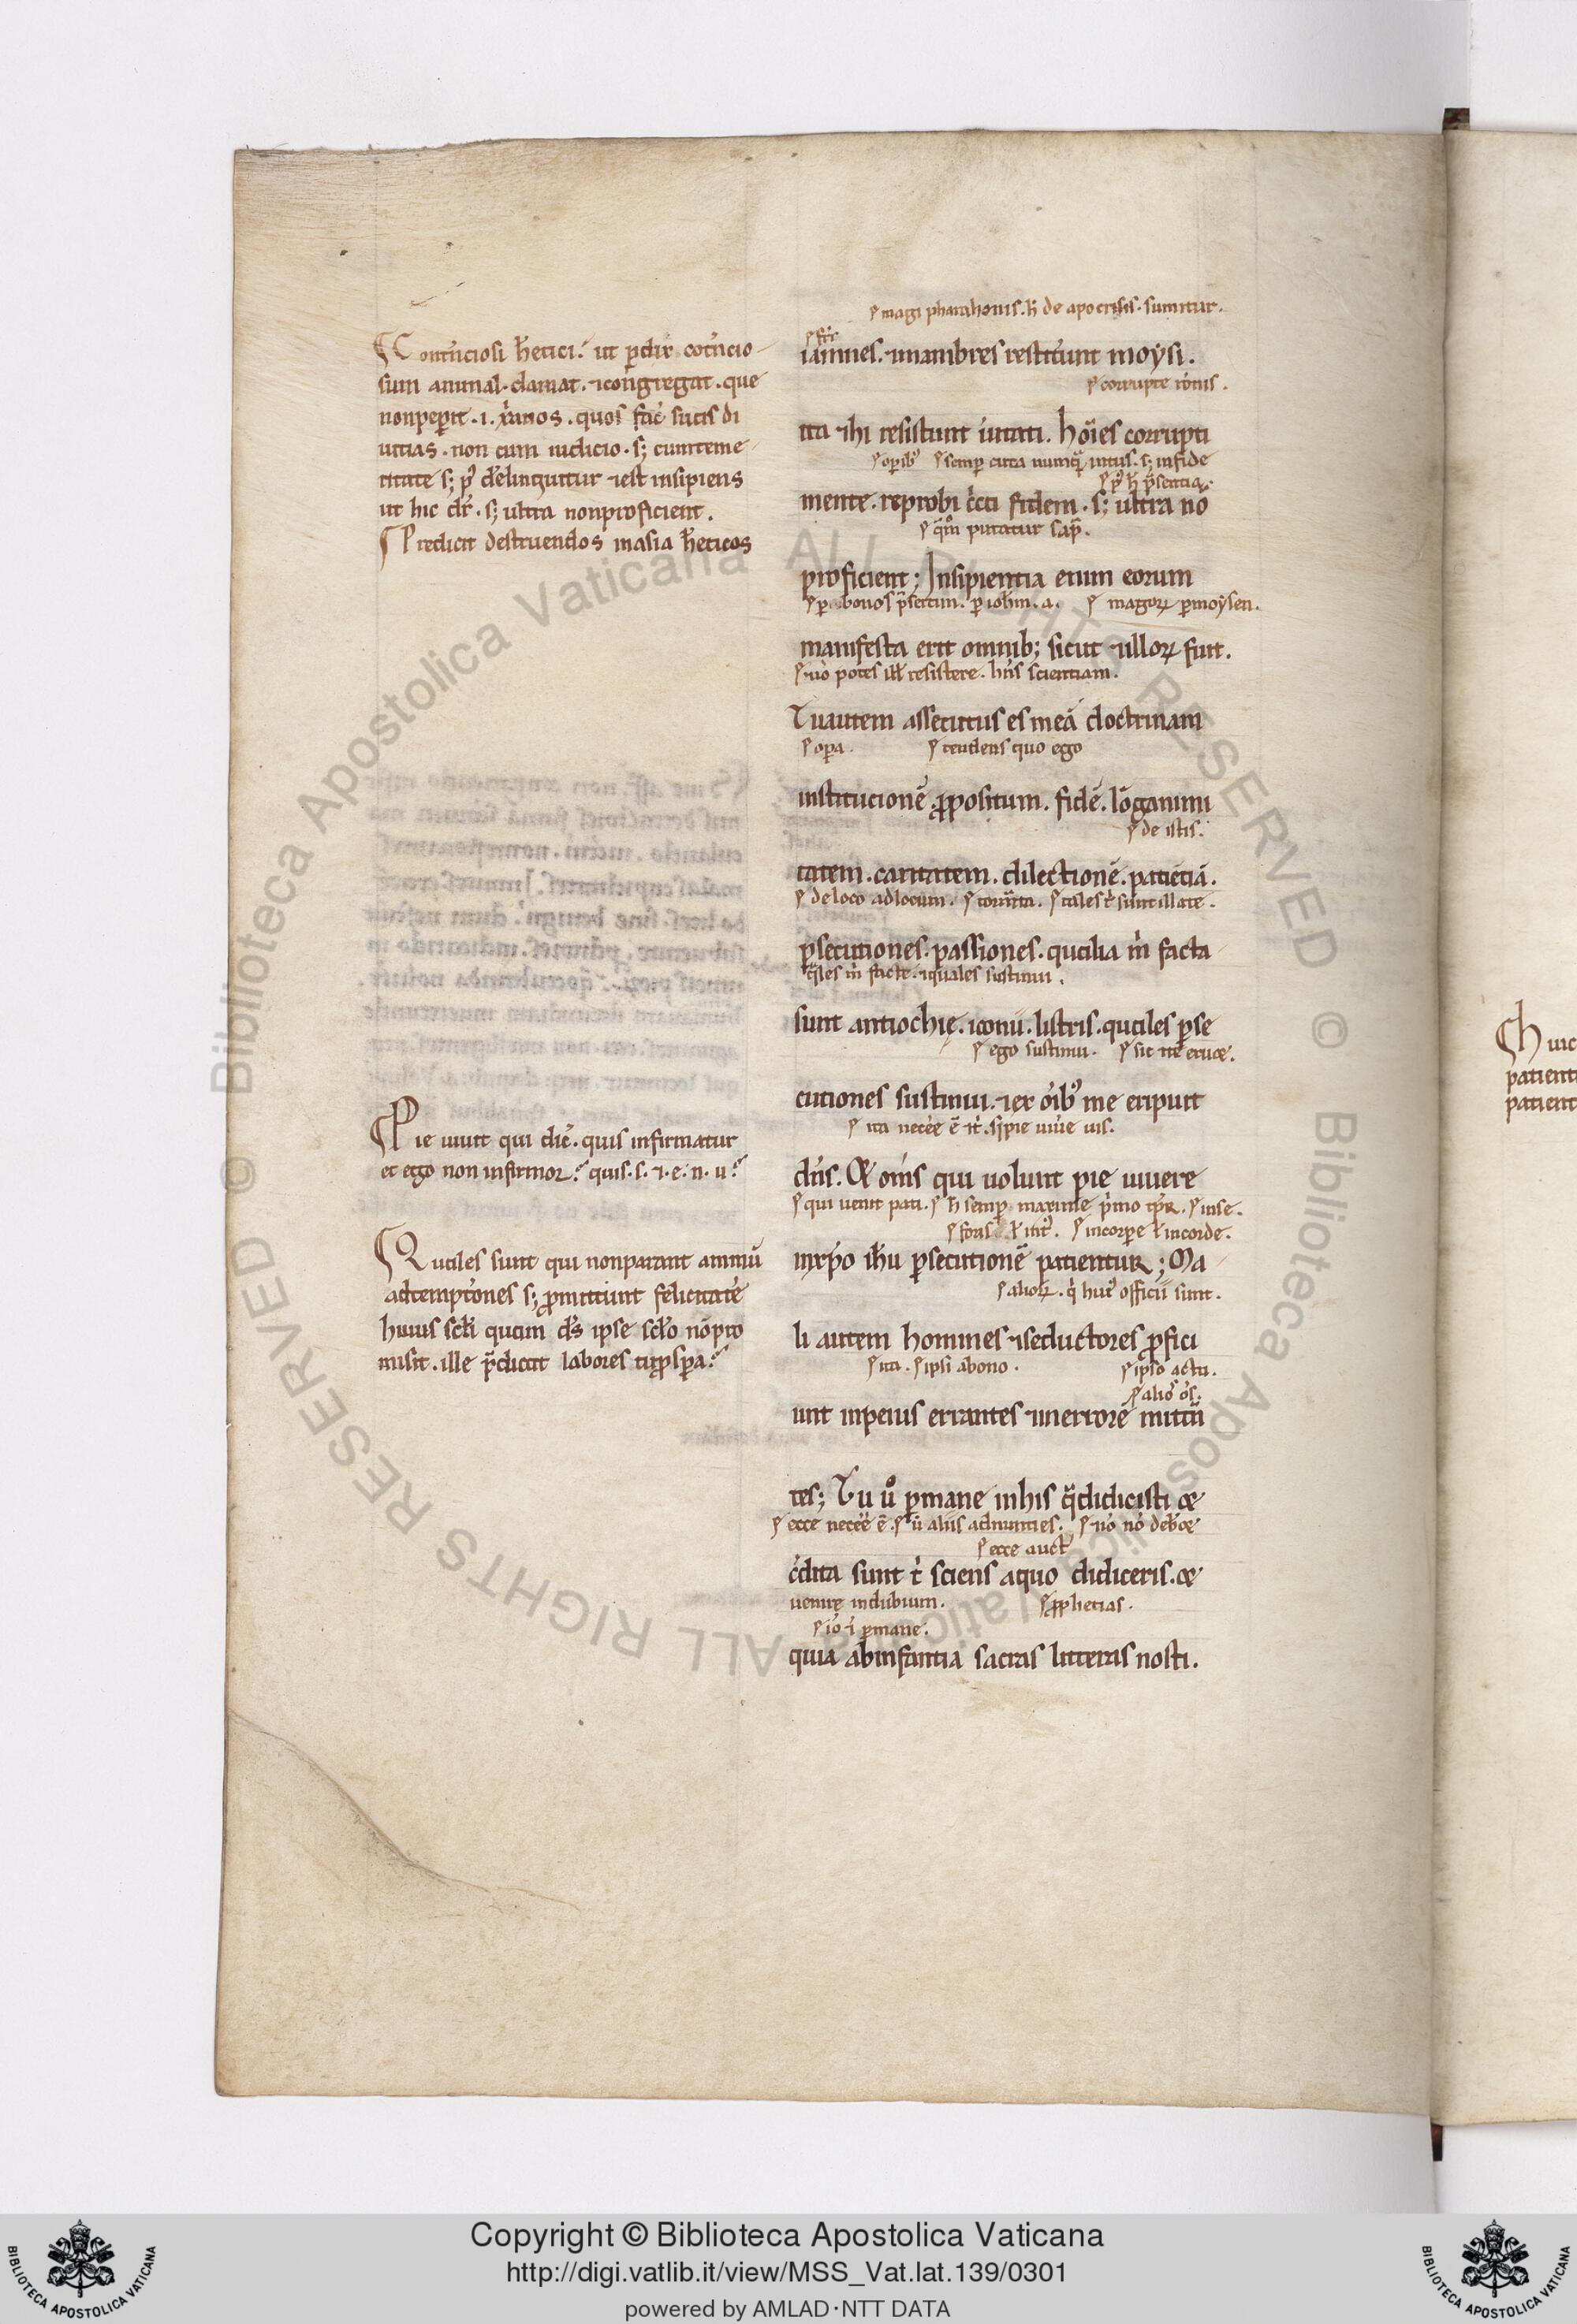 Contẽnciosi h̃etici. ut perdix cotẽncio-
sum animal. clamat. ⁊congregat. que
nonpeperit .i. xp̃ianos. quos fac̃ suas di
uitias. non cum iudicio. s; cumteme-
ritate s; p⁹ derelinquitur ⁊est insipiens
ut hic dr̃. s; ultra nonproficient.
Predicit destruendos
h̃eticos
Pie uiuit qui dic̃. quis infirmatur
et ego non infirmor? quis. s. ⁊. e. n. u?
Quales sunt qui nonparant animũ
adtemptõnes s; ꝓmittunt felicitatẽ
huius scl̃i quam d̃s ipse scl̃o nõpro
misit. ille p̃dicat labores tu ꝓspera?
magi pharahonis. h̃ de apocrifis. sumitur.
fr̃s
iamnes. ⁊mambres restiterunt moẏsi.
corrupte rõnis.
ita ⁊hi resistunt ueritati. hoĩes corrupti
operib⁹ semper citra numquã intus. s; infide
p⁹ h̃ p̃sentia.
mente. reprobi circa fidem. s; ultra nõ
putatur sap̃.
proficient; Insipientia enim eorum
bonos p̃sertim. p ioh̃m. a. magoꝝ permoẏsen.
manifesta erit omnib; sicut ⁊illoꝝ fuit.
potes ill̃ resistere. hñs scientiam.
Tuautem assecutus es meã doctrinam
opera. tendens quo ego
institucionẽ ꝓpositum. fidẽ. lõganimi
de istis.
tatem. caritatem. dilectionẽ. patiẽtiã.
deloco adlocum. tales sunt illate.
persecutiones. passiones. qualia m̃ facta
quales m̃ facte. ⁊quales sustinui.
sunt antiochię. iconii. listris. quales perse
ego sustinui. sic ⁊te eruet.
cutiones sustinui. ⁊ex õib⁹ me eripuit
ita necẽe ẽ pie uiũe uis.
dñs. Et om̃s qui uolunt pie uiuere
qui uenit pati. h̃ semper maxime p̃mo tp̃R. inse.
foris l̃ int⁹. incorpore l̃ incorde.
inxp̃o ih̃u persecutionẽ patientuR; Ma-
alioꝝ. q̃ hui⁹ officii sunt.
li autem homines ⁊seductores ꝓfici
ita. ipsi abono. ipso actu.
alios
unt inpeius errantes ⁊inerrorẽ mittũ
tes; Tu ũo permane inhis q̃didicisti et
ecce necẽe ẽ. ũ aliis adnunties. nõ debet
ecce auct⁹
credita sunt t̃ sciens aquo didiceris. et
uenire indubium. ꝓphetias.
permane.
quia abinfantia sacras litteras nosti.
Huic
patient
patient
Copyright © Biblioteca Apostolica Vaticana
http://digi.vatlib.it/view/MSS_Vat.lat.139/0301
powered by AMLAD·NTT DATA
BIBLIOTECA APOSTOLICA VATICANA
BIBLIOTECA APOSTOLICA VATICANA
© Biblioteca Apostolica Vaticana ALL RIGHTS RESERVED © Biblioteca Apostolica Vaticana ALL RIGHTS RESERVED